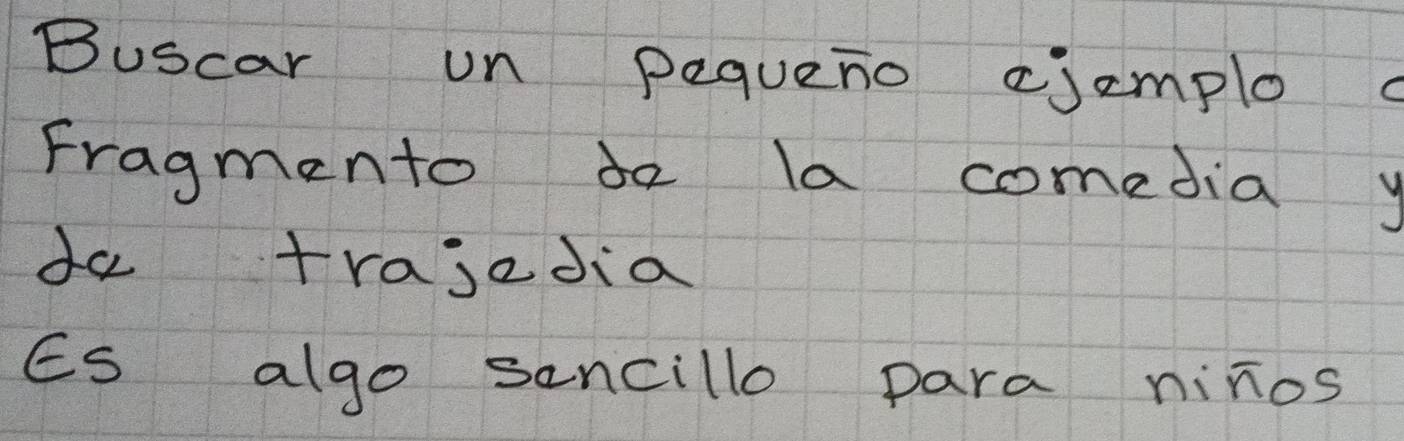 Buscar un pequeño ejemplo o
Fragmento de la comedia y
de trajedia
Es algo sencillo para niños